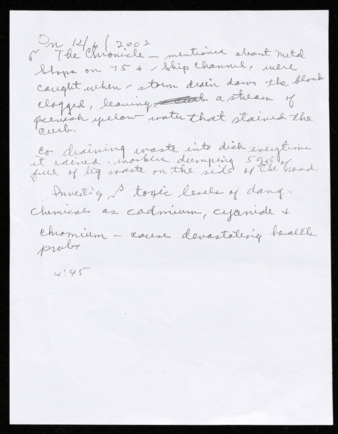 On 12/6/2002
The Chronicle - mentioned about metal
shops on 75 + Ship Channel, were
caught when storm drain down the block
clogged, leaving a stream of
greenish yellow water that stained the
curb.
Co draining waste into ditch everytime
it rained. workers dumping 5 gal
full of liq waste on the side of the road.
Investig toxic levels of dang.
chemicals as cadmium, cyanide +
chromium - cause devastating health
probs
4:45